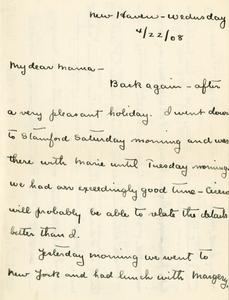 New Haven - Wednesday
4/22/08
My dear Mama -
Back again - after
a very pleasant holiday. I went down
to Stamford Saturday morning and was
there with Marie until Tuesday morning
we had an exceedingly good time -
will probably be able to relate the details
better than I.
Yesterday morning we went to
New York and had lunch with Margery,